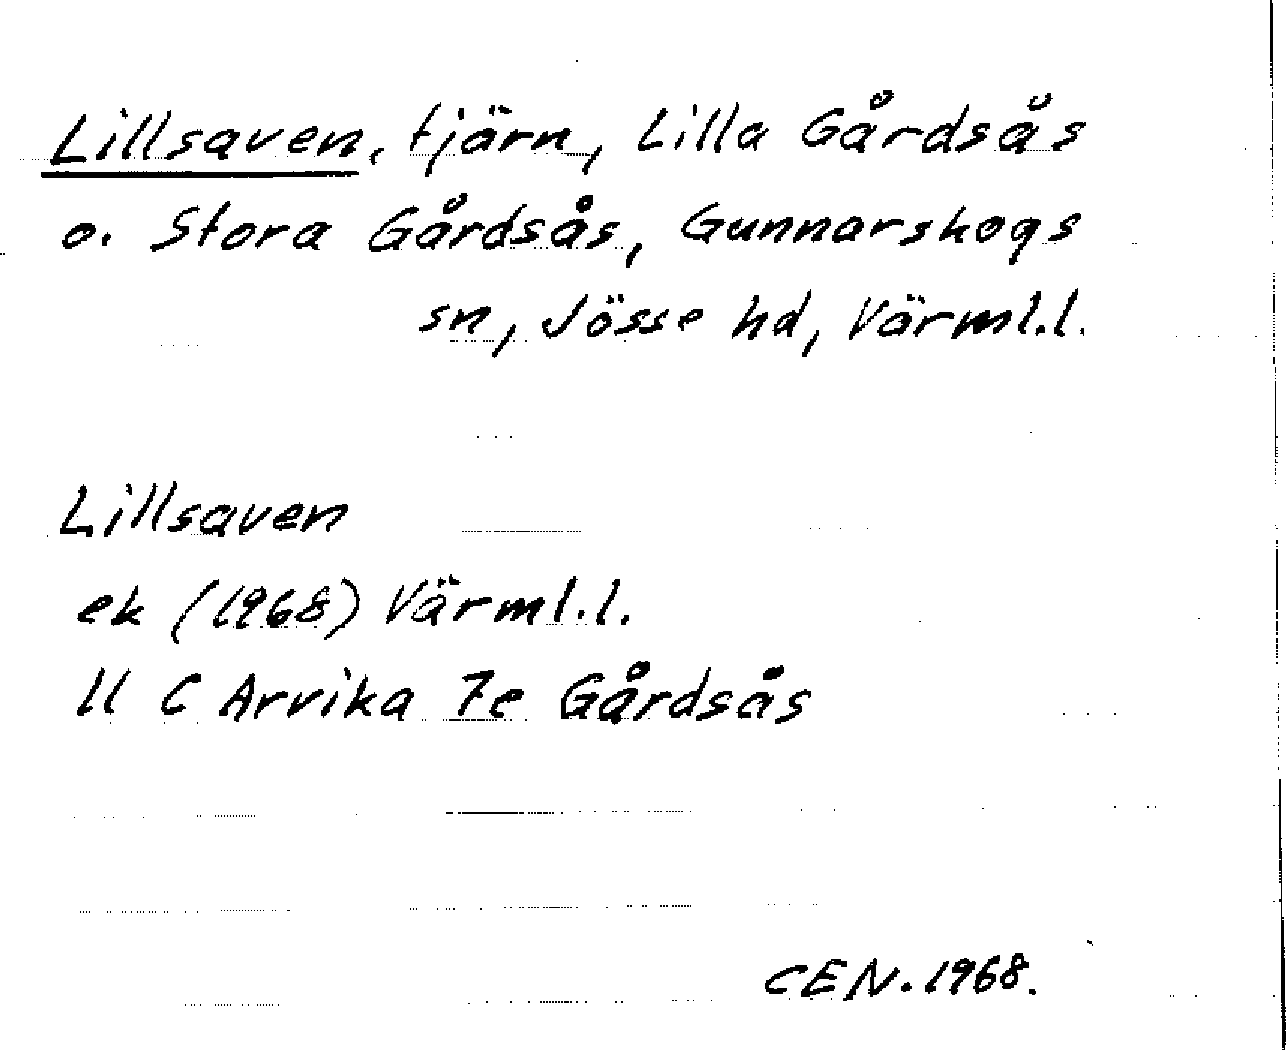 Lillsaven, tjärn, Lilla Gårdsås
o. Stora Gårdsås, Gunnarskogs
sn, Jösse hd, Värml.l.
Lillsaven
ek (1968) Värml.l.
11 C Arvika 7e Gårdsås
CEN. 1968.